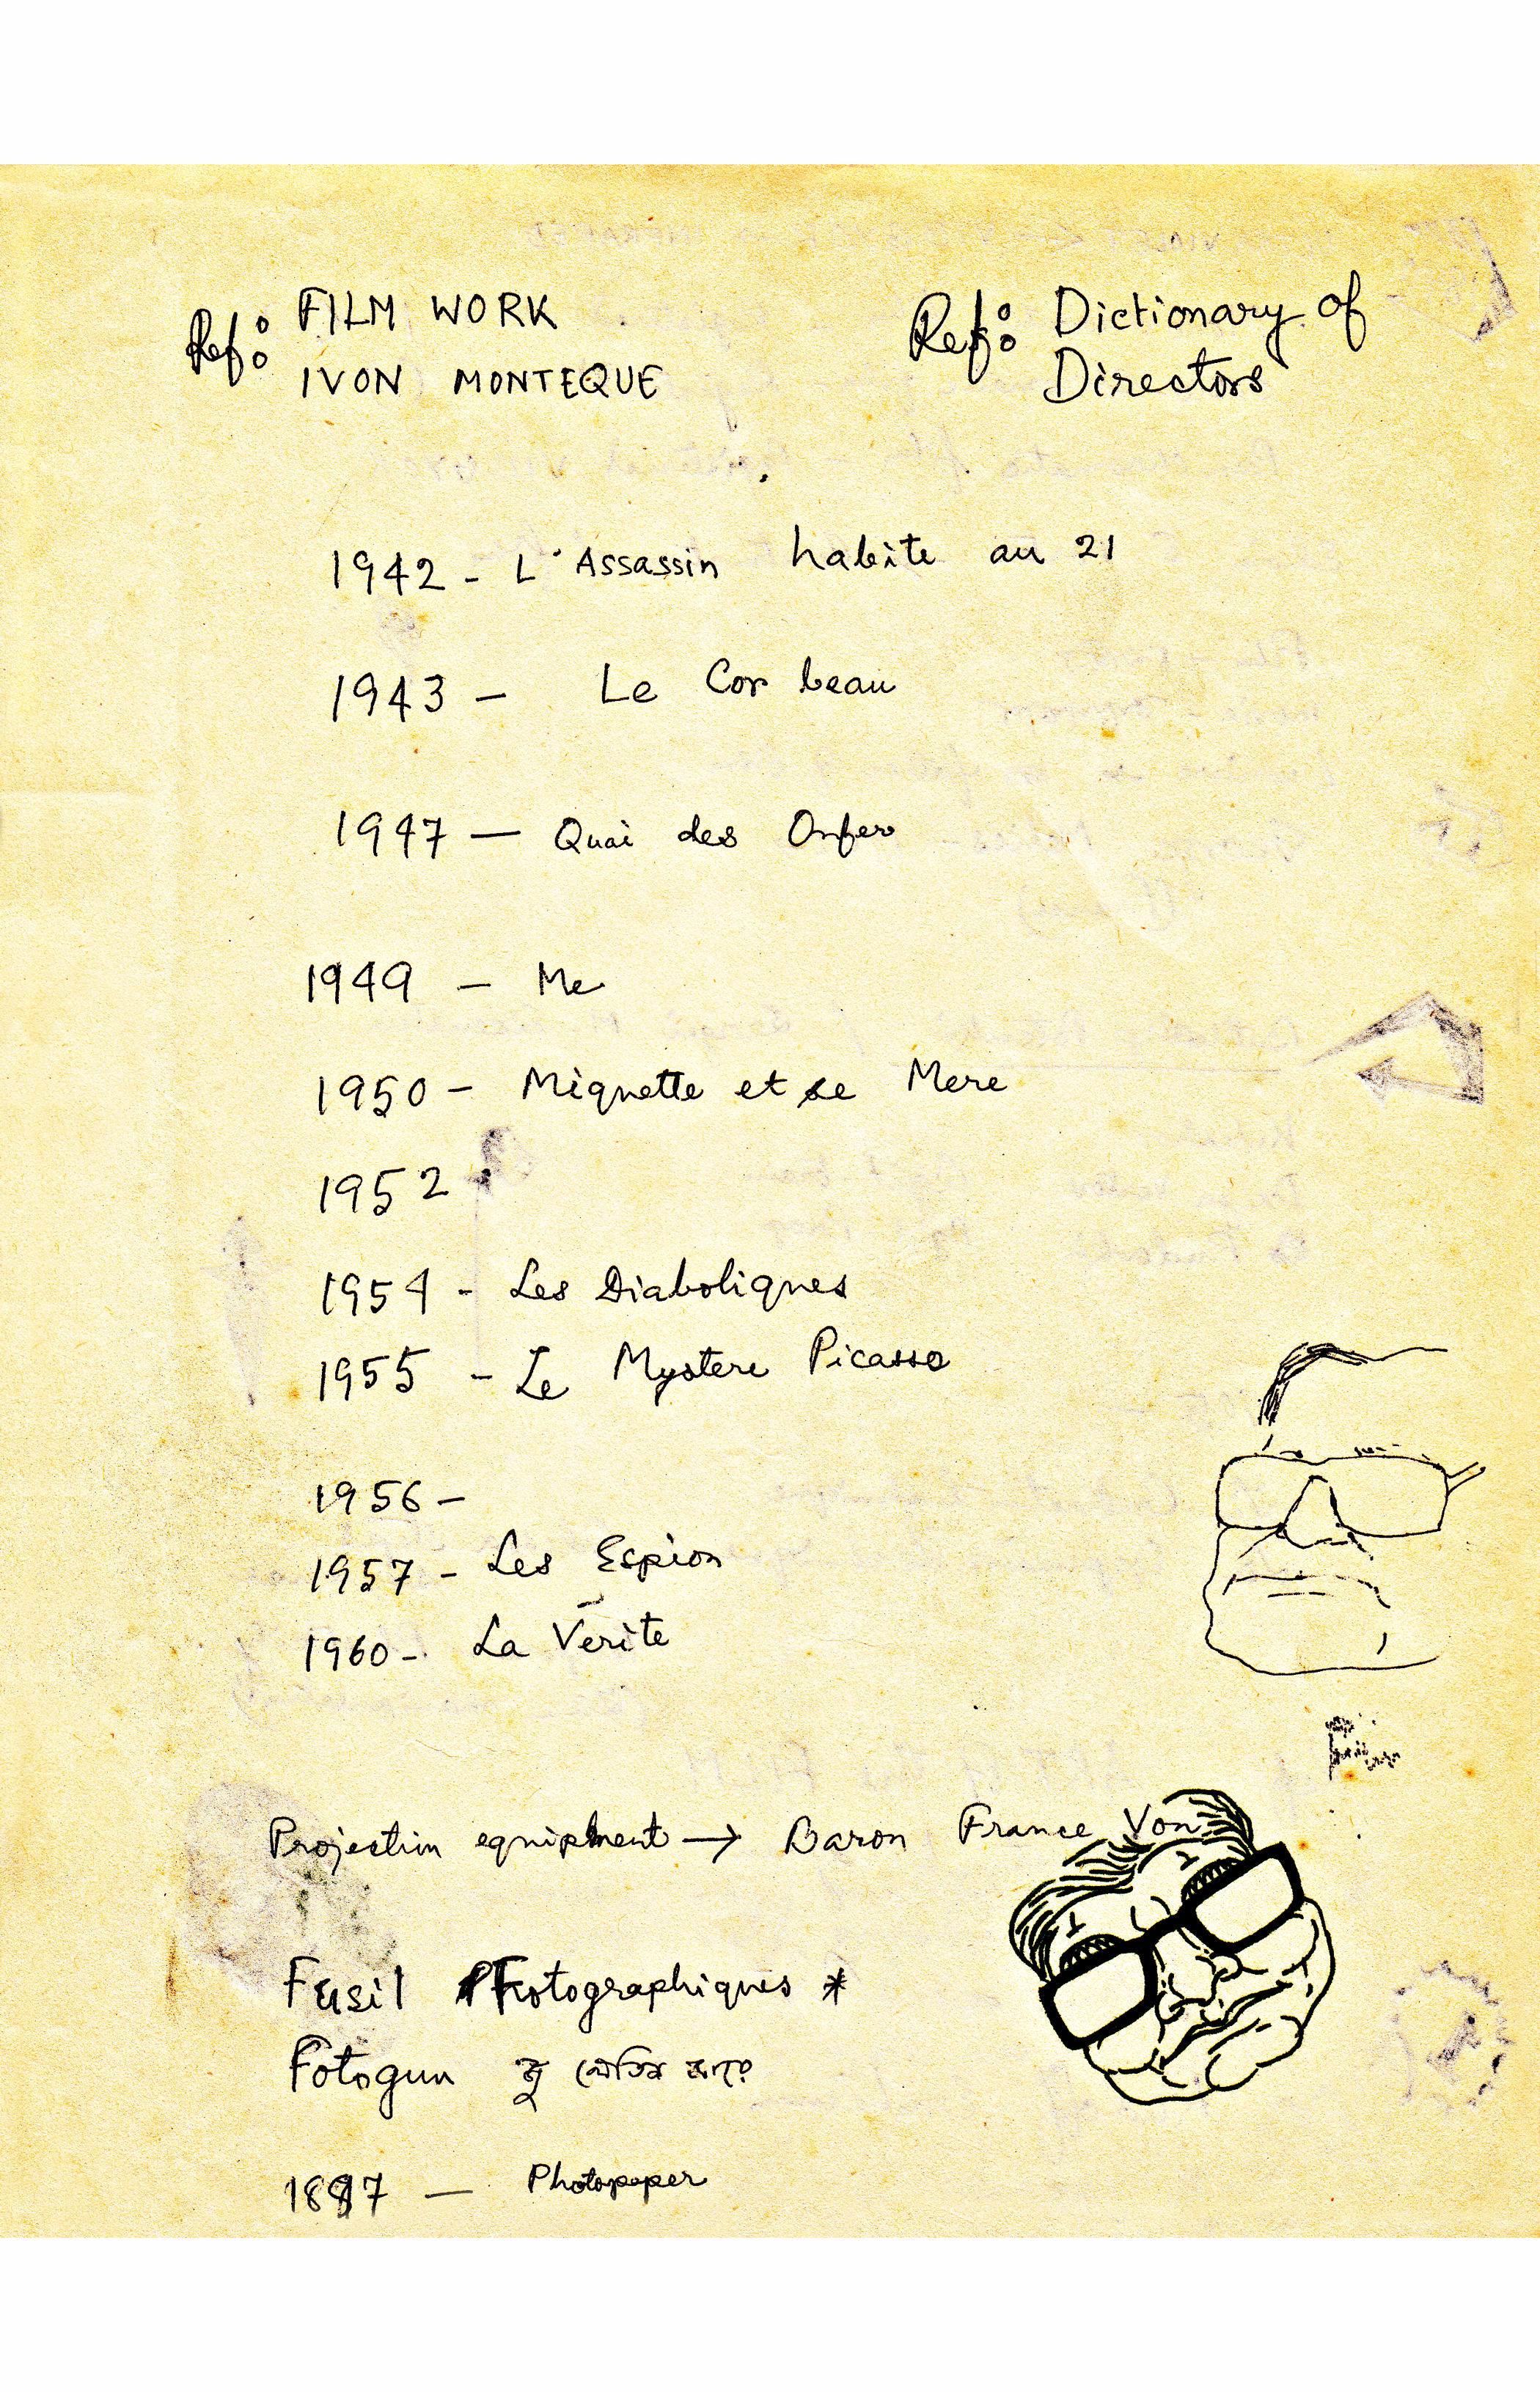 Ref: FILM WORK
IVON MONTEQUE
Ref: Dictionary of
Directors
1942 - L'Assassin habite au 21
1943 - Le Cor beau
1947 — Quai des Onfer
1949 - Me
1950 - Miquette et se Mere
1952
1954 - Les Diaboliques
1955 - Le Mystere Picasso
1956 -
1957 - Les Espion
1960 - La Verite
Projection equipment → Baron France Von
Fusil Fotographiques *
Fotogun
1887 — Photopaper